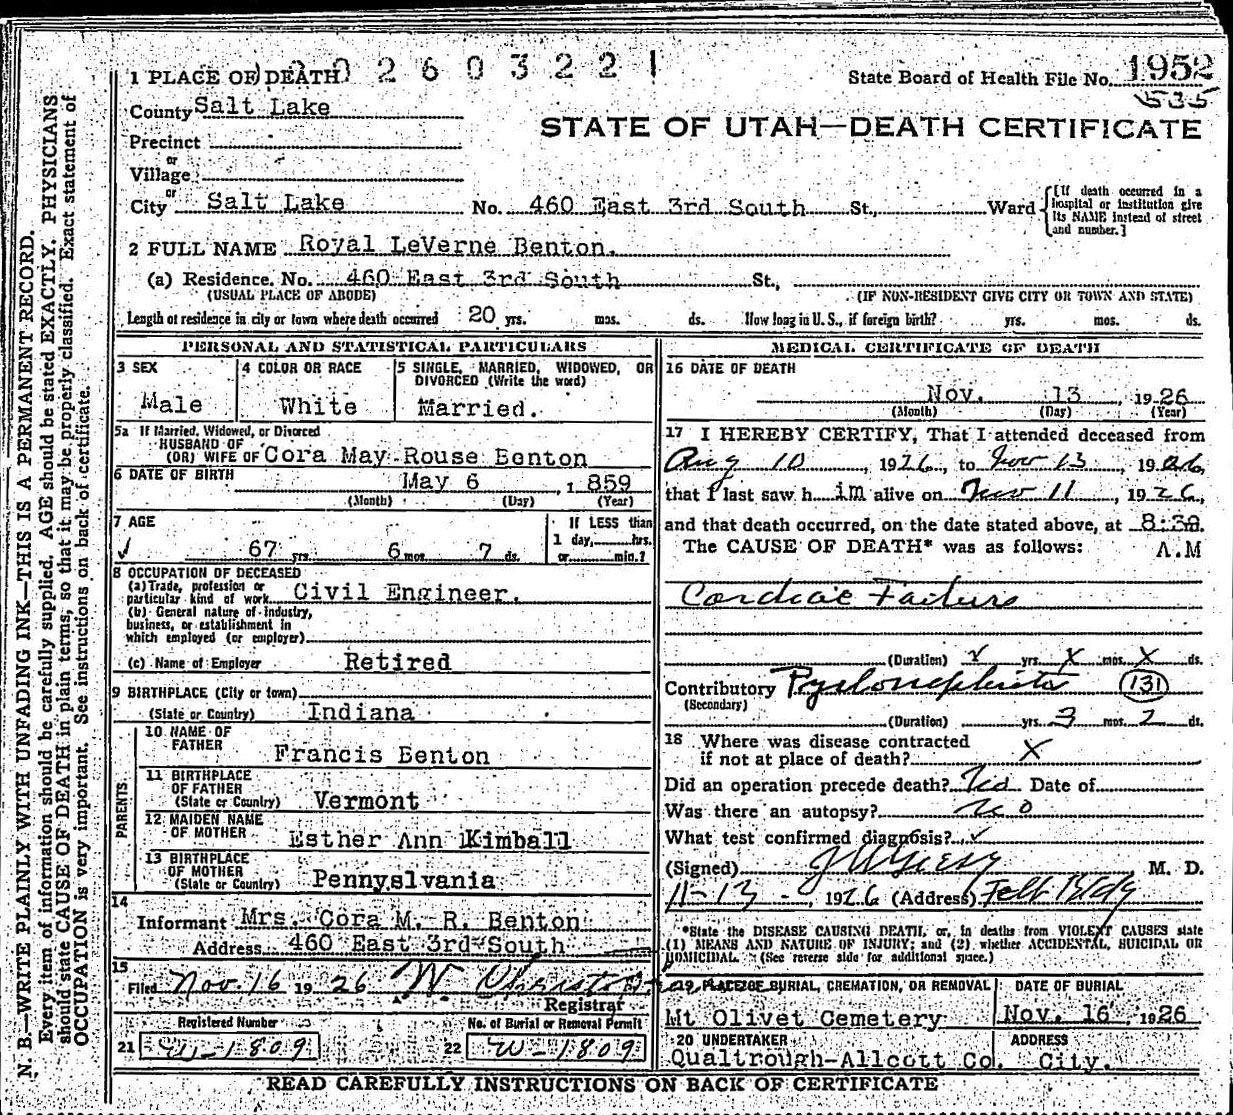 1 PLACE OF DEATH 2 6 0 3 2 2 1
State Board of Health File No. 1952
535
County Salt Lake
STATE OF UTAH—DEATH CERTIFICATE
Precinct
or
Village
or
City Salt Lake No. 460 East 3rd South St., Ward
[If death occurred in a hospital or institution give its NAME instead of street and number.]
2 FULL NAME Royal LeVerne Benton.
(a) Residence. No. 460 East 3rd South St.,
(USUAL PLACE OF ABODE) (IF NON-RESIDENT GIVE CITY OR TOWN AND STATE)
Length of residence in city or town where death occurred 20 yrs. mos. ds. How long in U. S., if foreign birth? yrs. mos. ds.
PERSONAL AND STATISTICAL PARTICULARS
3 SEX
Male
4 COLOR OR RACE
White
5 SINGLE, MARRIED, WIDOWED, OR
DIVORCED (Write the word)
Married.
5a If Married, Widowed, or Divorced
HUSBAND OF
(OR) WIFE OF Cora May Rouse Benton
6 DATE OF BIRTH
May 6, 1859
(Month) (Day) (Year)
7 AGE
67 yrs 6 mos. 7 ds.
If LESS than
1 day, hrs.
or min.?
8 OCCUPATION OF DECEASED
(a) Trade, profession or
particular kind of work Civil Engineer.
(b) General nature of industry,
business, or establishment in
which employed (or employer)
(c) Name of Employer Retired
9 BIRTHPLACE (City or town)
(State or Country) Indiana
PARENTS
10 NAME OF
FATHER
Francis Benton
11 BIRTHPLACE
OF FATHER
(State or Country) Vermont
12 MAIDEN NAME
OF MOTHER
Esther Ann Kimball
13 BIRTHPLACE
OF MOTHER
(State or Country) Pennyslvania
14
Informant Mrs. Cora M. R. Benton
Address 460 East 3rd South
15
Filed Nov. 16 1926 W
Registrar
Registered Number
21 W-1809
No. of Burial or Removal Permit
22 W-1809
MEDICAL CERTIFICATE OF DEATH
16 DATE OF DEATH
Nov. 13, 1926
(Month) (Day) (Year)
17 I HEREBY CERTIFY, That I attended deceased from
Aug 10, 1926, to Nov 13, 1926,
that I last saw h im alive on Nov 11, 1926,
and that death occurred, on the date stated above, at 8:30.
The CAUSE OF DEATH* was as follows: A.M
Cardiac Failure
(Duration) yrs. X mos. X ds.
Contributory Pyelonephritis 131
(Secondary)
(Duration) yrs. 3 mos. 2 ds.
18 Where was disease contracted
if not at place of death? X
Did an operation precede death? Date of
Was there an autopsy? no
What test confirmed diagnosis?
(Signed) M. D.
11-13-, 1926 (Address) Felt Bldg
*State the DISEASE CAUSING DEATH, or, in deaths from VIOLENT CAUSES state
(1) MEANS AND NATURE OF INJURY; and (2) whether ACCIDENTAL, SUICIDAL OR
HOMICIDAL. (See reverse side for additional space.)
19 PLACE OF BURIAL, CREMATION, OR REMOVAL
Mt Olivet Cemetery
DATE OF BURIAL
Nov. 16, 1926
20 UNDERTAKER
Qualtrough-Allcott Co.
ADDRESS
City.
READ CAREFULLY INSTRUCTIONS ON BACK OF CERTIFICATE
N. B.—WRITE PLAINLY WITH UNFADING INK—THIS IS A PERMANENT RECORD.
Every item of information should be carefully supplied. AGE should be stated EXACTLY. PHYSICIANS
should state CAUSE OF DEATH in plain terms, so that it may be properly classified. Exact statement of
OCCUPATION is very important. See instructions on back of certificate.